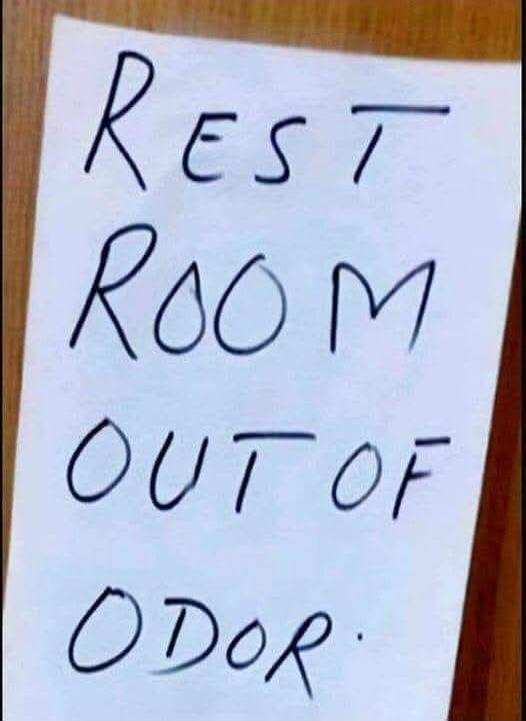 REST
ROOM
OUT OF
ODOR.